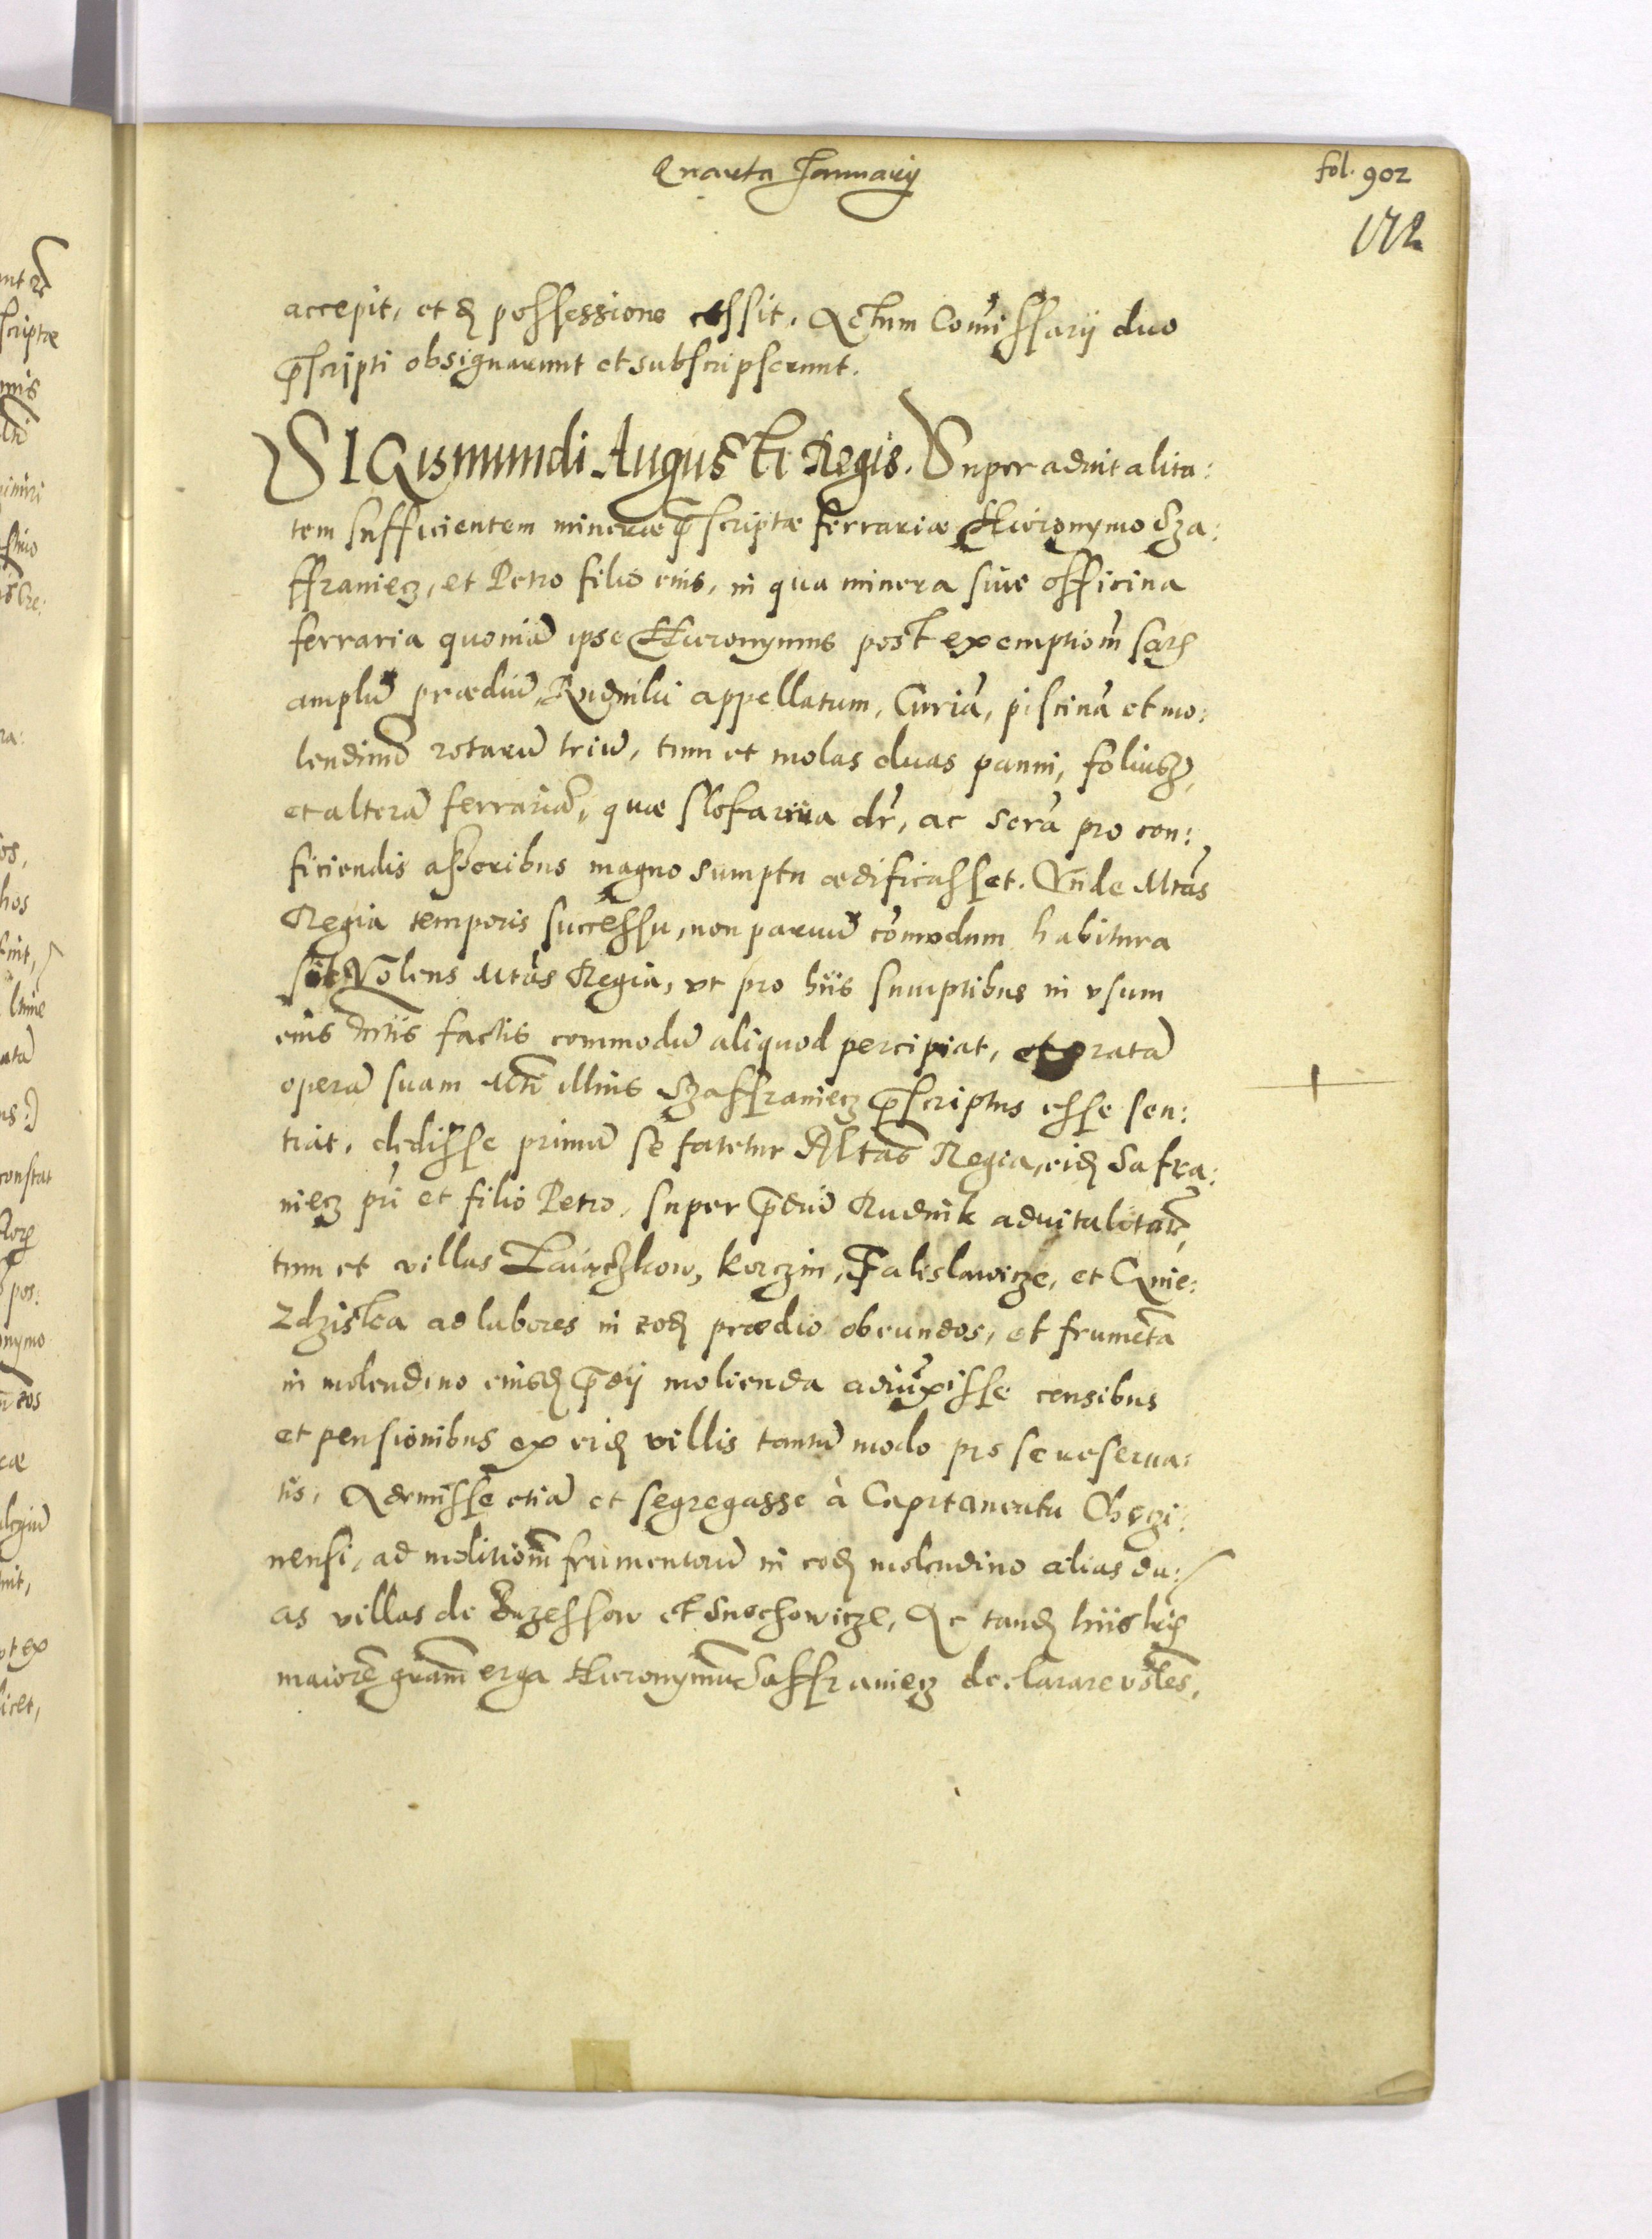 Quarta Januarij
fol. 902
172
accepit, et de possessione cessit. Actum Comissarij duo
pscripti obsignarunt et subscripserunt.
SIGismundi Augusti Regis. Super aduitalita:
tem sufficientem minerae pscriptae ferrariae Hieronymo Sza:
ffraniecz, et Petro filio eius, in qua minera siue officina
ferraria quoniā ipse Hieronymus post exemptiom̄
amplū praediū, Rudniki appellatum, Curiā, piscinā et mo:
lendinū rotarū triū, tum et molas duas panni, foliusz,
et alterā ferrariā, quae slofarnia dr̄, ac serā pro con:
ficiendis asseribus magno sumptu aedificasset. Vnde Mtās
Regia temporis successu, non paruū cōmodum habitura
sit Volens Mtās Regia, vt pro hiis sumptibus in vsum
eius factis commodū aliquod percipiat, et gratā
operā suam Mti illius Szaffraniecz pscriptus esse sen:
tiat, dedisse primū se fatetur Mtās Regia, eid Safra:
niecz pri et filio Petro, super pdiū Rudnik aduitalitatē,
tum et villas Lawęczkow, Korczin, Falislawicze, et Gnie:
zdziska ad labores in eod praedio obeundos, et frumēta
in molendino eiusd pdij molienda adiūxisse censibus
et pensionibus ex eisd villis tantū modo pro se reserua:
tis, Ademisse etiā et segregasse à Capitaneatu Chęci:
nensi, ad molitiōm frumentorū in eod molendino alias du:
as villas de Brzessow et Snochowicze, Ac tand hiis lrīs
maiorē grām erga Hieronymū Saffraniecz declarare volēs,